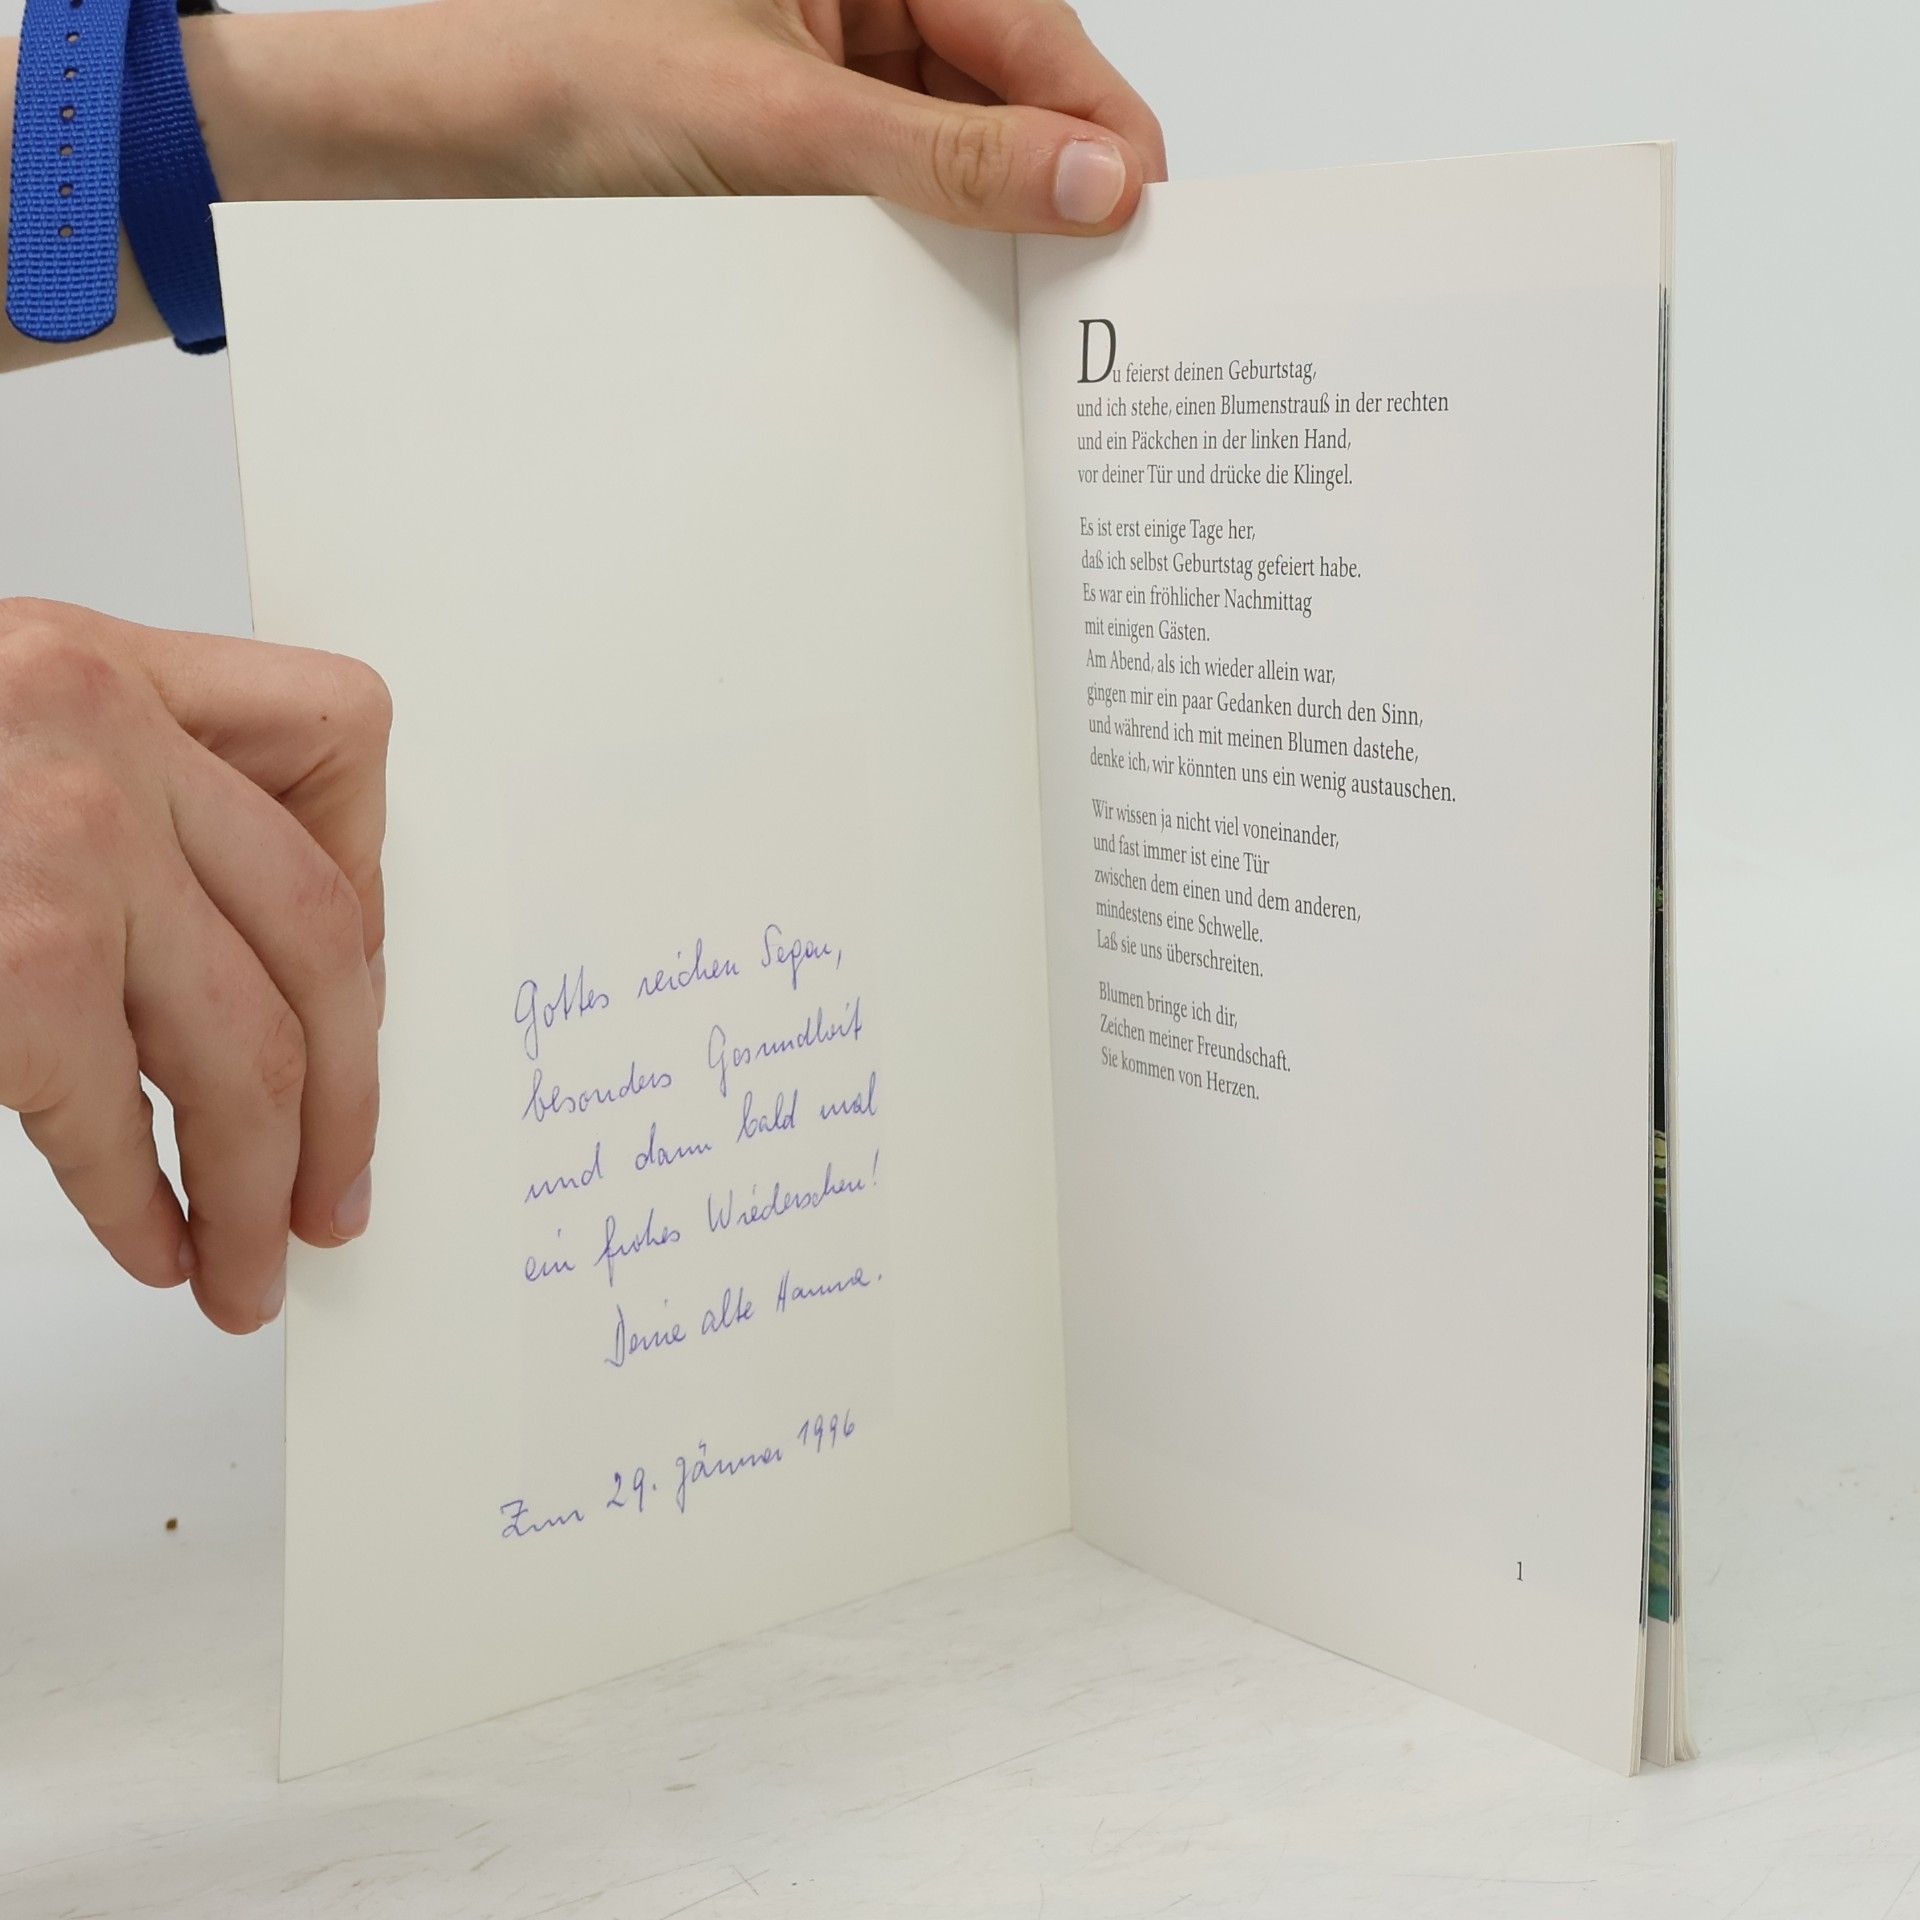 Gottes reichen Segen,
besonders Gesundheit
und dann bald mal
ein frohes Wiedersehen!
Deine alte Hanna.
Zum 29. Jänner 1996
Du feierst deinen Geburtstag,
und ich stehe, einen Blumenstrauß in der rechten
und ein Päckchen in der linken Hand,
vor deiner Tür und drücke die Klingel.
Es ist erst einige Tage her,
daß ich selbst Geburtstag gefeiert habe.
Es war ein fröhlicher Nachmittag
mit einigen Gästen.
Am Abend, als ich wieder allein war,
gingen mir ein paar Gedanken durch den Sinn,
und während ich mit meinen Blumen dastehe,
denke ich, wir könnten uns ein wenig austauschen.
Wir wissen ja nicht viel voneinander,
und fast immer ist eine Tür
zwischen dem einen und dem anderen,
mindestens eine Schwelle.
Laß sie uns überschreiten.
Blumen bringe ich dir,
Zeichen meiner Freundschaft.
Sie kommen von Herzen.
1